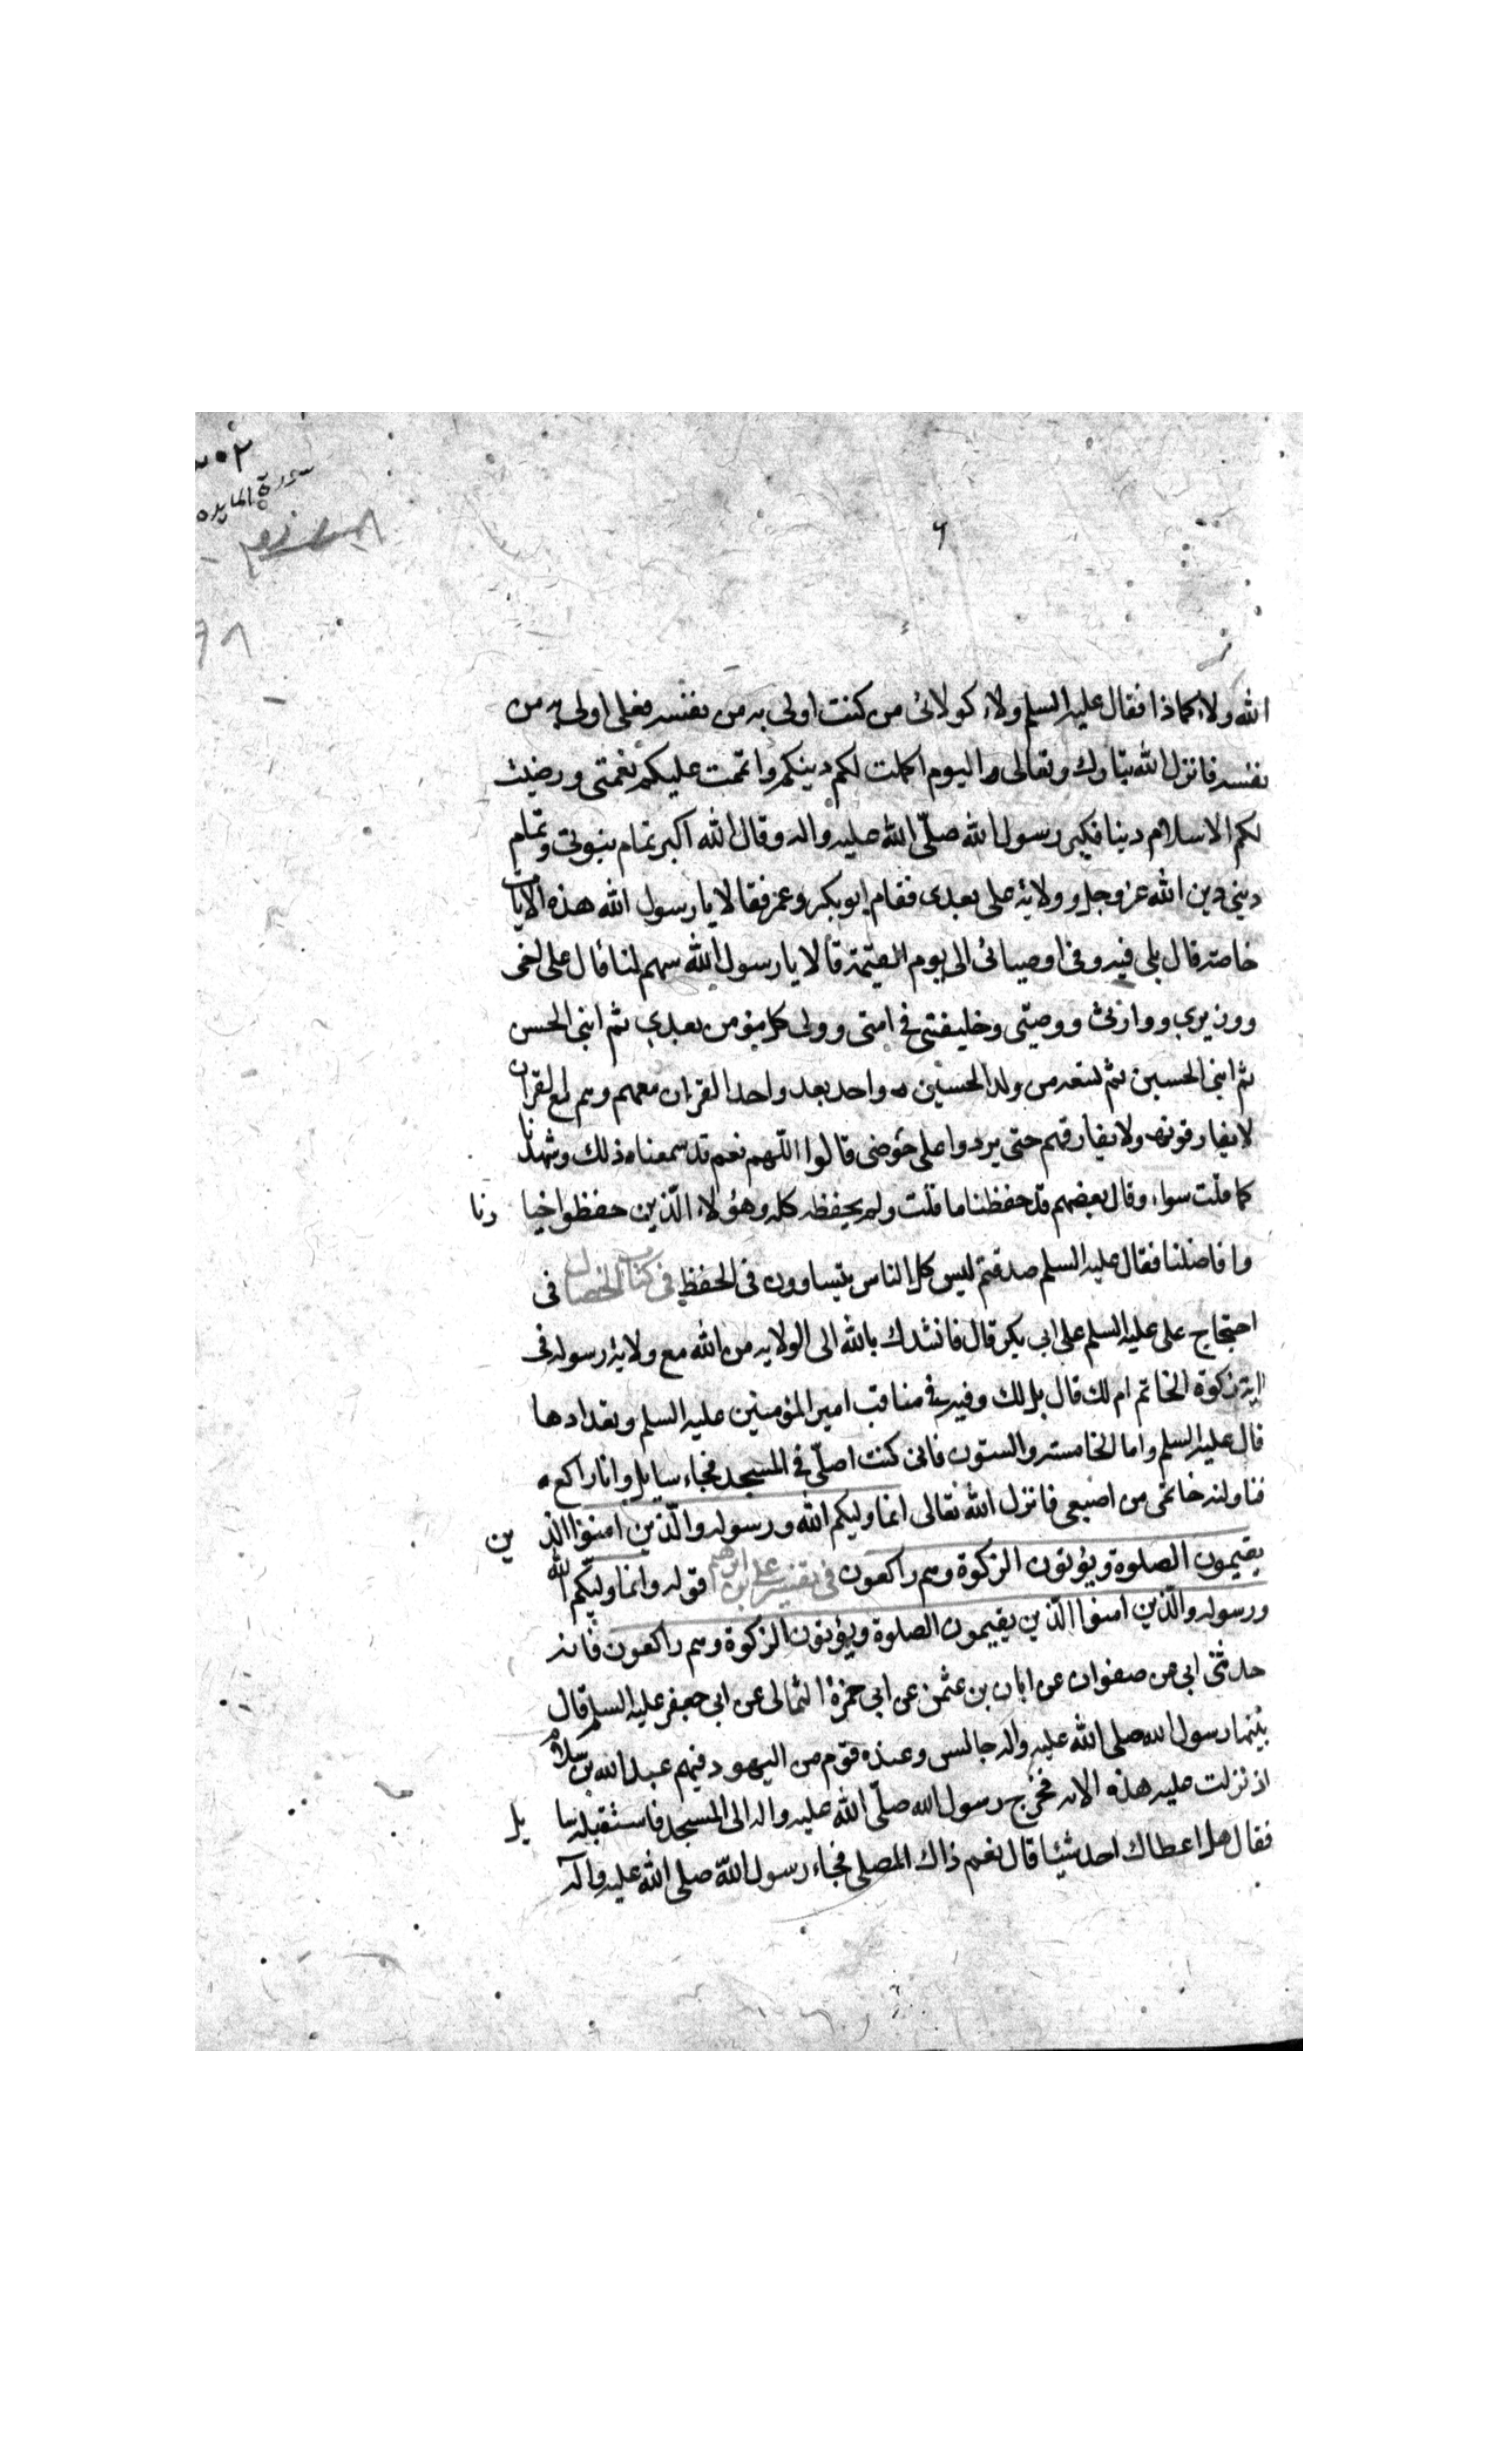 ٣٠٢
سورة المايده
الله ولاء كماذا فقال عليه السلم ولاء كولائى من كنت اولى به من نفسه فعلى اولى به من
نفسه فانزل الله تبارك وتعالى اليوم اكملت لكم دينكم واتممت عليكم نعمتى ورضيت
لكم الاسلام دينا فكبر رسول الله صلّى الله عليه واله وقال الله اكبر تمام نبوتى وتمام
دينى دين الله عز وجل وولاية على بعدى فقام ابو بكر وعمر فقالا يا رسول الله هذه الايات
خاصة قال بلى فيه وفى اوصيائى الى يوم القيمة قالا يا رسول الله سمهم لنا قال على اخى
ووزيرى ووارثى ووصيّى وخليفتى فى امتى وولى كل مؤمن بعدى ثم ابنى الحسن
ثم ابنى الحسين ثم تسعة من ولد الحسين واحد بعد واحد القران معهم وهم مع القران
لا يفارقونه ولا يفارقهم حتى يردوا على حوضى قالوا اللّهم نعم قد سمعنا ذلك وشهدنا
كما قلت سواء وقال بعضهم قد حفظنا ما قلت ولم يحفظه كله وهؤلاء الّذين حفظوا اخيا رنا
وافاضلنا فقال عليه السلم صدقتم ليس كل الناس يتساوون فى الحفظ فى كتاب الخصال فى
احتجاج على عليه السلم على ابى بكر قال فانشدك بالله الى الولاية من الله مع ولاية رسوله فى
اية زكوة الخاتم ام لك قال بل لك وفيه فى مناقب امير المؤمنين عليه السلم وتعدادها
قال عليه السلم واما الخامسة والستون فانى كنت اصلّى فى المسجد فجاء سايل وانا راكع
فناولته خاتمى من اصبعى فانزل الله تعالى انما وليكم الله ورسوله والّذين امنوا الذ ين
يقيمون الصلوة ويؤتون الزكوة وهم راكعون فى تفسير على بن ابرهيم قوله وانما وليّكم الله
ورسوله والّذين امنوا الّذين يقيمون الصلوة ويؤتون الزكوة وهم راكعون فانه
حدثنى ابى عن صفوان عن ابان بن عثمن عن ابى حمزة الثمالى عن ابى جعفر عليه السلم قال
بينما رسول الله صلى الله عليه واله جالس وعنده قوم من اليهود فيهم عبد الله بن سلام
اذ نزلت عليه هذه الاية فخرج رسول الله صلّى الله عليه واله الى المسجد فاستقبله سا يل
فقال هل اعطاك احد شيئا قال نعم ذاك المصلى فجاء رسول اللّه صلى الله عليه وآله